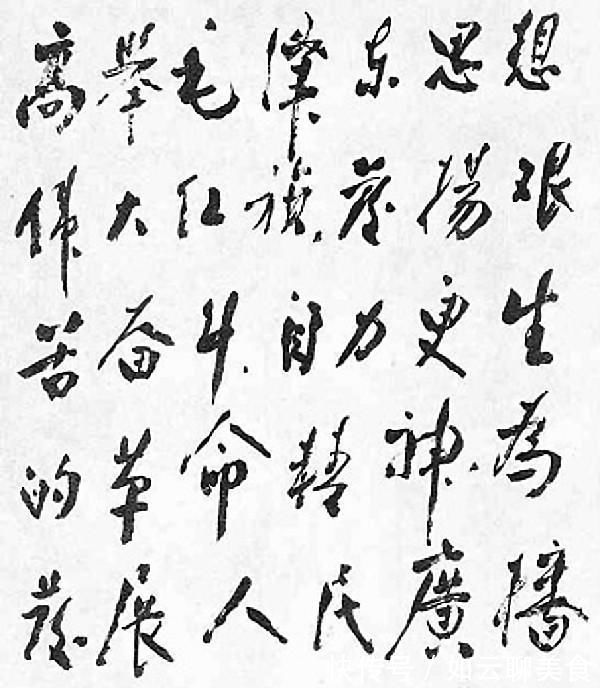 高舉毛澤东思想
偉大红旗發揚艰
苦奋斗自力更生
的革命精神為
發展人民廣播
快传号 / 如云聊美食